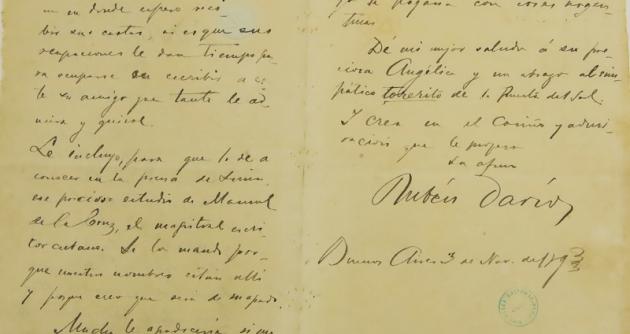 en donde espero reci-
bir sus cartas, si es que sus
ocupaciones le dan tiempo pa-
ra ocuparse en escribir a es-
te su amigo que tanto le ad-
mira y quiere.
Le incluyo, para que lo dé a
conocer en la prensa de Lima,
ese precioso estudio de Manuel
de la Cruz, el magistral escri-
tor cubano. Se lo mando por-
que nuestros nombres están allí
y porque creo que será de su agrado.
Mucho le agradecería si me
se pagaría con cosas argen-
tinas
Dé mis mejor saludo á su pre-
ciosa Angélica y un abrazo al sim-
pático torerito de la Puerta del Sol.
Y crea en el cariño y admi-
ración que le profesa
su afmo
Rubén Darío
Buenos Aires 3 de Nov. de